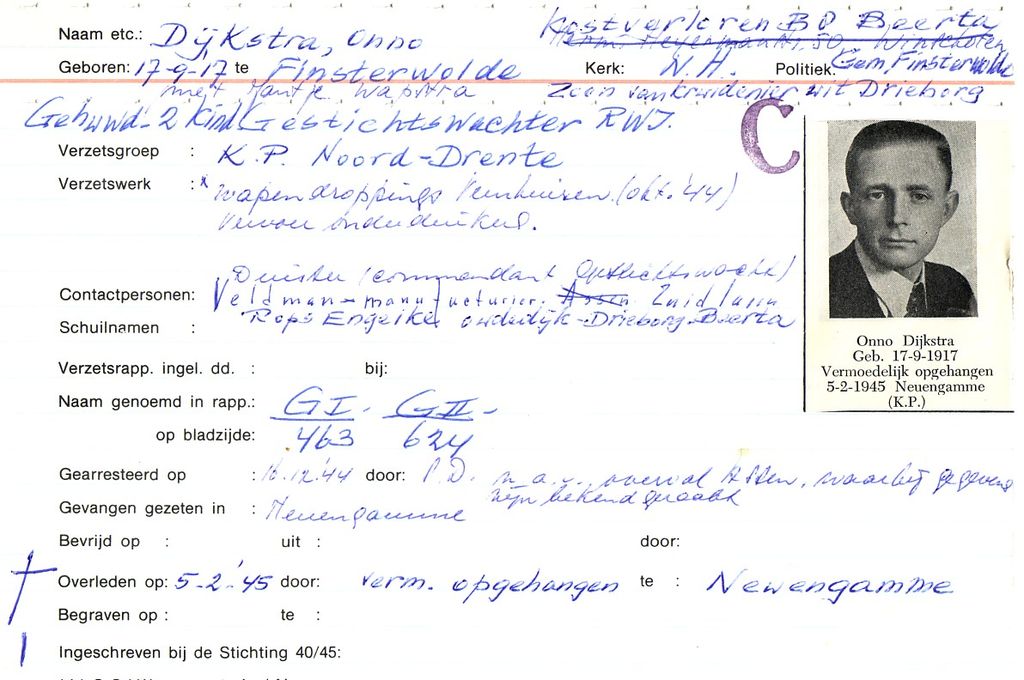 Naam etc.: Dijkstra, Onno Kostverloren B 8 Beerta
Winschoten
Geboren: 17-9-17 te Finsterwolde Kerk: N.H. Politiek: Gem. Finsterwolde
met Jantje Wapstra Zoon van kruidenier uit Drieborg
Gehuwd - 2 kind. Gestichtswachter RWI. C
Verzetsgroep : K.P. Noord-Drente
Verzetswerk : x wapendroppings Veenhuizen (okt. '44)
onderduikers.
Duister (commandant Gestichtswacht)
Contactpersonen: Veldman - manufacturier, Assen Zuidlaren
Schuilnamen : Drieborg-Beerta
Onno Dijkstra
Geb. 17-9-1917
Vermoedelijk opgehangen
5-2-1945 Neuengamme
(K.P.)
Verzetsrapp. ingel. dd. : bij:
Naam genoemd in rapp.: GI - GII -
op bladzijde: 463 624
Gearresteerd op : 16.12.'44 door: S.D. n.a.v. overval Assen, waarbij gegevens
zijn bekend geraakt
Gevangen gezeten in : Neuengamme
Bevrijd op : uit : door:
Overleden op: 5-2-'45 door: verm. opgehangen te : Neuengamme
Begraven op : te :
Ingeschreven bij de Stichting 40/45: